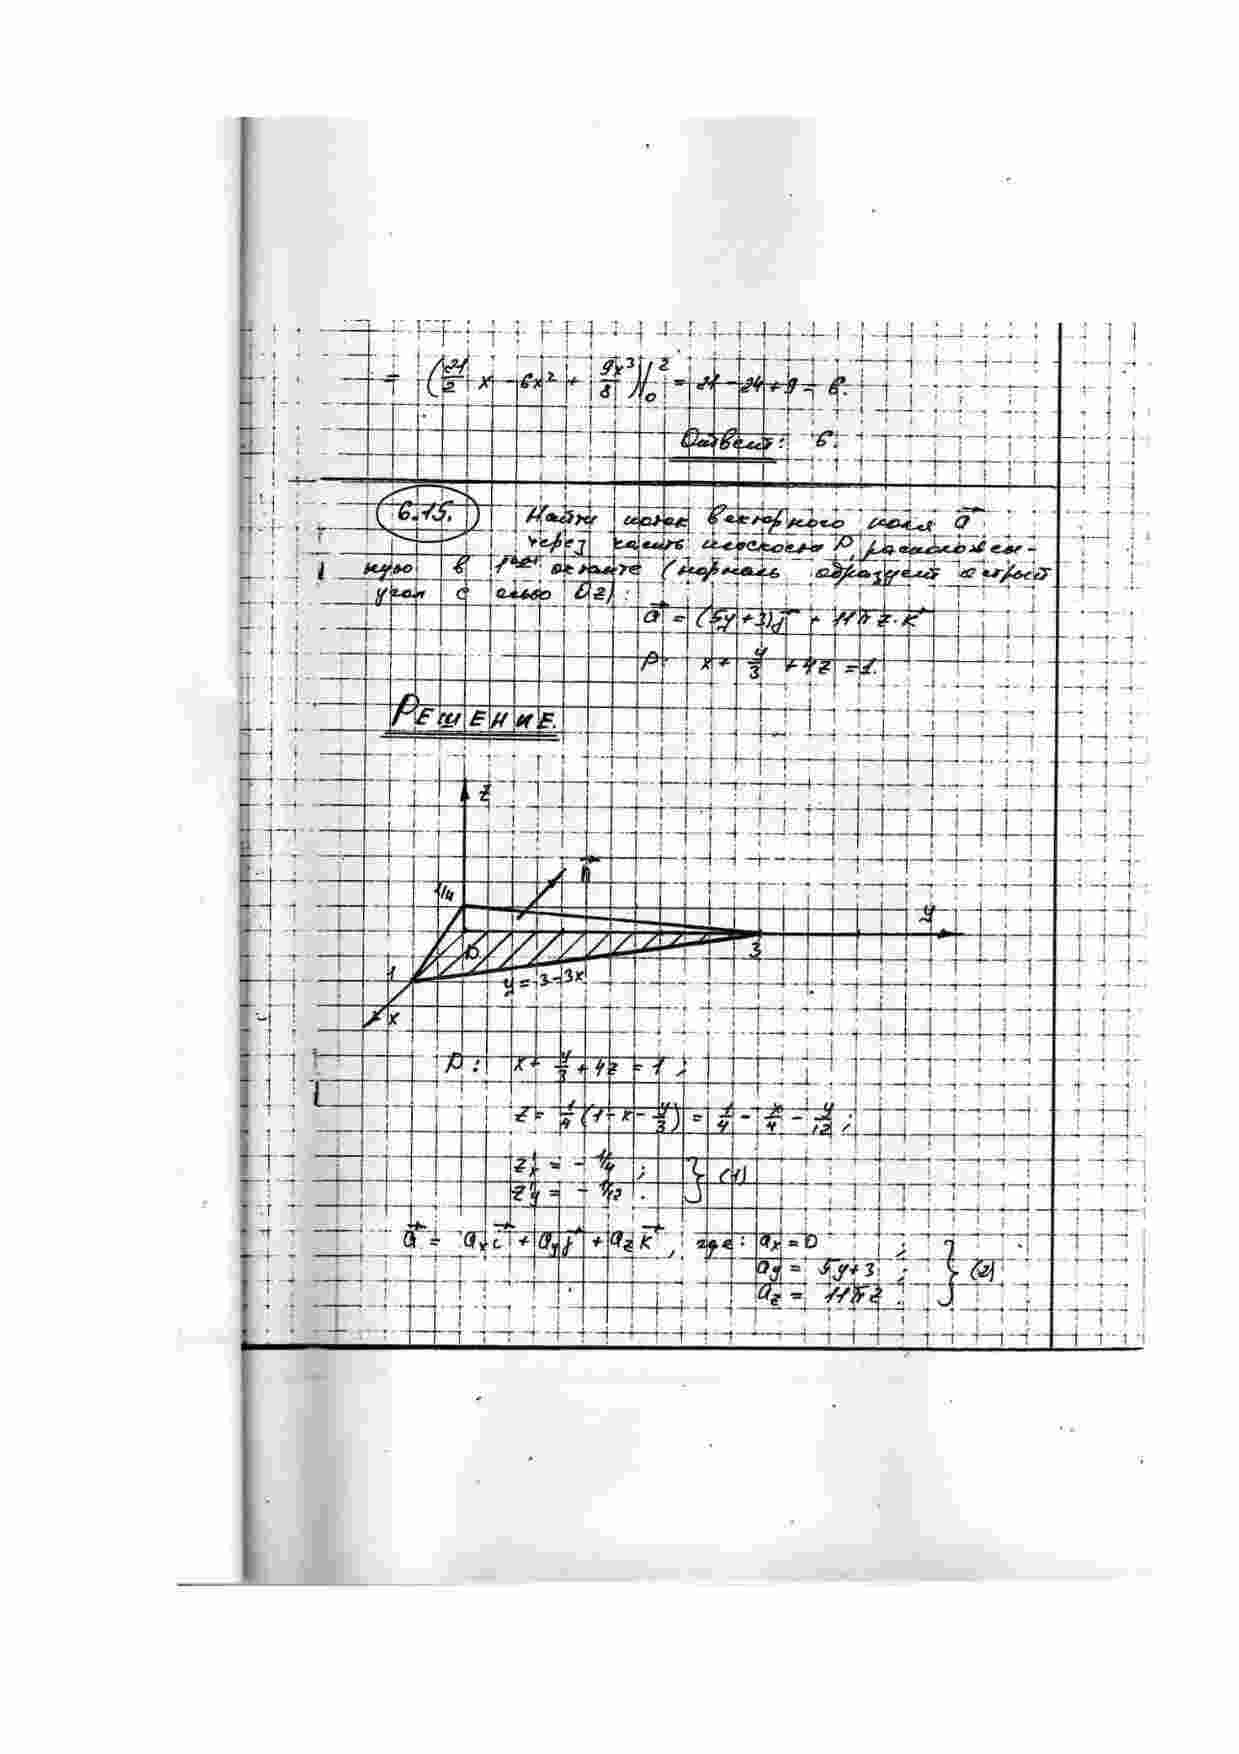 = (21/2 x - 6x² + 9x³/8)|₀² = 21 - 24 + 9 = 6.
Ответ: 6.
6.15. Найти поток векторного поля a⃗
через часть плоскости P, расположен-
ную в 1ом октанте (нормаль образует острый
угол с осью Oz):
a⃗ = (5y+3)j⃗ + 11πz·k⃗
P: x + y/3 + 4z = 1.
РЕШЕНИЕ.
z
n⃗
1/4
y
D
3
1
y = 3-3x
x
P: x + y/3 + 4z = 1 ;
z = 1/4 (1 - x - y/3) = 1/4 - x/4 - y/12 ;
z'x = - 1/4 ;
z'y = - 1/12 . } (1)
a⃗ = aₓi⃗ + a_y j⃗ + a_z k⃗, где: aₓ = 0 ;
a_y = 5y+3 ; } (2)
a_z = 11πz .